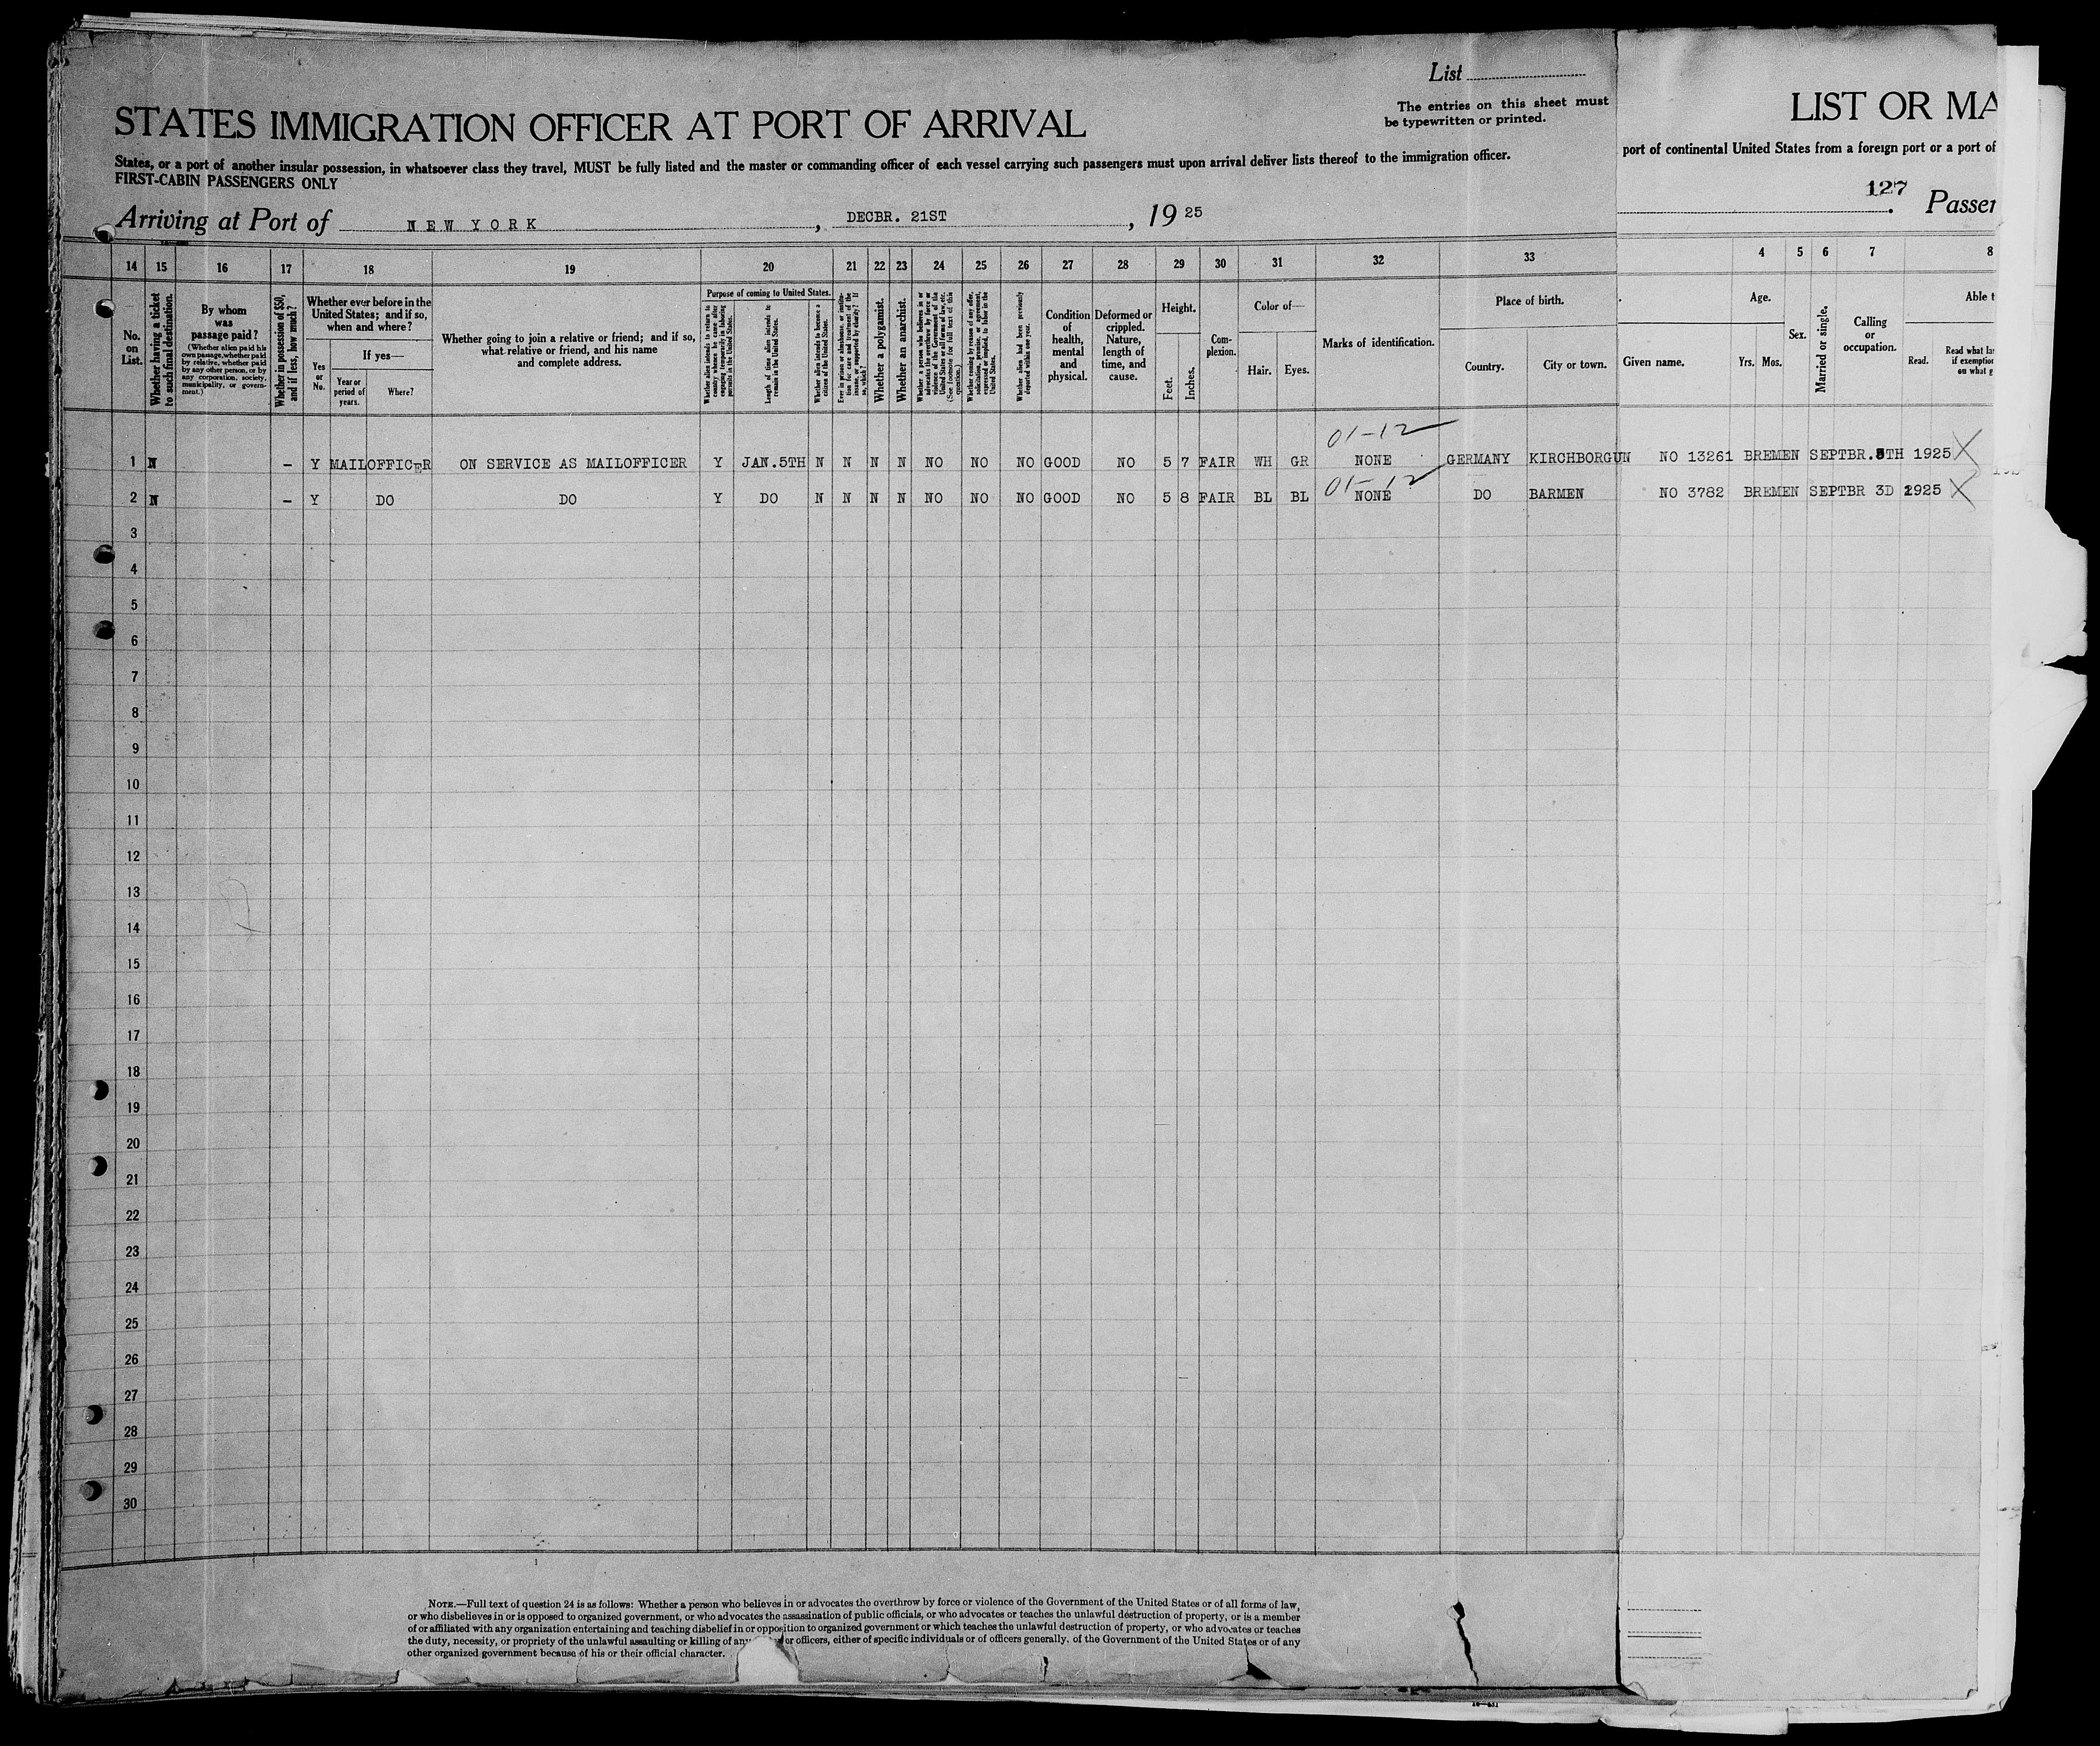 List
The entries on this sheet must
be typewritten or printed.
STATES IMMIGRATION OFFICER AT PORT OF ARRIVAL
States, or a port of another insular possession, in whatsoever class they travel, MUST be fully listed and the master or commanding officer of each vessel carrying such passengers must upon arrival deliver lists thereof to the immigration officer.
FIRST-CABIN PASSENGERS ONLY
Arriving at Port of NEW YORK, DECBR. 21ST, 19 25
LIST OR MA
port of continental United States from a foreign port or a port of
127
Passer
14 15 16 17 18 19 20 21 22 23 24 25 26 27 28 29 30 31 32 33
4 5 6 7 8
No. on List.
Whether having a ticket to such final destination.
By whom was passage paid?
(Whether alien paid his own passage, whether paid by relative, whether paid by any other person, or by any corporation, society, municipality, or government.)
Whether in possession of $50, and if less, how much?
Whether ever before in the United States; and if so, when and where?
Yes or No.
If yes—
Year or period of years.
Where?
Whether going to join a relative or friend; and if so, what relative or friend, and his name and complete address.
Purpose of coming to United States.
Whether alien intends to return to country whence he came after engaging temporarily in laboring pursuits in the United States.
Length of time alien intends to remain in the United States.
Whether alien intends to become a citizen of the United States.
Whether a polygamist.
Whether an anarchist.
Whether alien had been previously deported within one year.
Condition of health, mental and physical.
Deformed or crippled. Nature, length of time, and cause.
Height.
Feet.
Inches.
Complexion.
Color of—
Hair.
Eyes.
Marks of identification.
Place of birth.
Country.
City or town.
Given name.
Age.
Yrs.
Mos.
Sex.
Married or single.
Calling or occupation.
Able t
Read.
01-12
1 N – Y MAILOFFICER ON SERVICE AS MAILOFFICER Y JAN.5TH N N N N NO NO NO GOOD NO 5 7 FAIR WH GR NONE GERMANY KIRCHBORGUN NO 13261 BREMEN SEPTBR. 1925 X
01-12
2 N – Y DO DO Y DO N N N N NO NO NO GOOD NO 5 8 FAIR BL BL NONE DO BARMEN NO 3782 BREMEN SEPTBR 3D 1925 X
3
4
5
6
7
8
9
10
11
12
13
14
15
16
17
18
19
20
21
22
23
24
25
26
27
28
29
30
NOTE.—Full text of question 24 is as follows: Whether a person who believes in or advocates the overthrow by force or violence of the Government of the United States or of all forms of law,
or who disbelieves in or is opposed to organized government, or who advocates the assassination of public officials, or who advocates or teaches the unlawful destruction of property, or is a member
of or affiliated with any organization entertaining and teaching disbelief in or opposition to organized government or which teaches the unlawful destruction of property, or who advocates or teaches
the duty, necessity, or propriety of the unlawful assaulting or killing of any or officers, either of specific individuals or of officers generally, of the Government of the United States or of any
other organized government because of his or their official character.